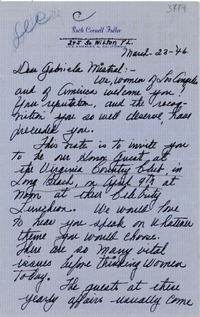 See
3894
Ruth Cornell Fuller
245 So. Wilton Pl.
Los Angeles, California
March - 23 - 46
Dear Gabriela Mistral:-
We, women of Los Angeles
and of America welcome you!
Your reputation, and the recog-
nition you so well deserve, has
preceded you.
This note is to invite you
to be our Honor Guest at
the Virginia Country Club in
Long Beach, on April 9th at
Noon at their Celebrity
Luncheon. We would love
to hear you speak on whatever
theme you would choose.
There are so many vital
issues before thinking women
today.
The guests at these
yearly affairs usually come